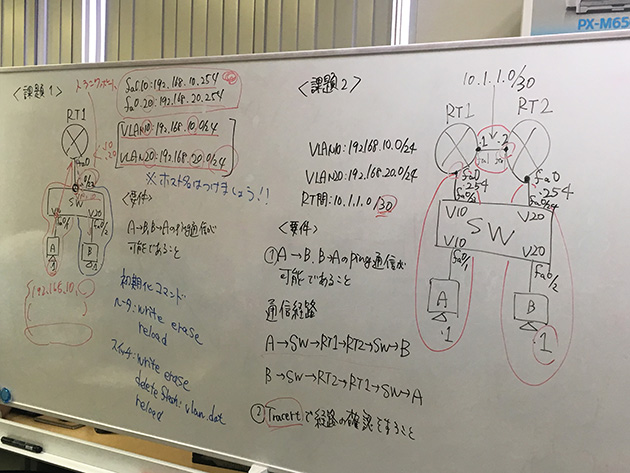 PX-M65
<課題1>
トランクポート
fa0.10:192.168.10.254
fa0.20:192.168.20.254
RT1
VLAN10:192.168.10.0/24
VLAN20:192.168.20.0/24
.10
.20
fa0
※ホスト名はつけましょう!!
SW
V10
V20
fa0/1
fa0/2
A
B
.1
<要件>
A→B,B→Aのping通信が
可能であること
192.168.10.
初期化コマンド
ルータ:write erase
reload
スイッチ:write erase
delete flash:vlan.dat
reload
<課題2>
10.1.1.0/30
RT1
RT2
VLAN10:192.168.10.0/24
VLAN20:192.168.20.0/24
RT間:10.1.1.0/30
.1
.2
fa1
fa1
fa0
.254
fa0
.254
V10
V20
SW
V10
V20
fa0/1
fa0/2
A
B
.1
.1
<要件>
①A→B,B→Aのping通信が
可能であること
通信経路
A→SW→RT1→RT2→SW→B
B→SW→RT2→RT1→SW→A
②Tracertで経路の確認をすること